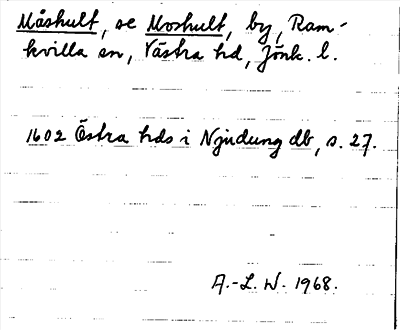 Måshult, se Moshult, by, Ram-
kvilla sn, Västra hd, Jönk. l.
1602 Östra hds i Njudung db, s. 27.
A.-L. W. 1968.